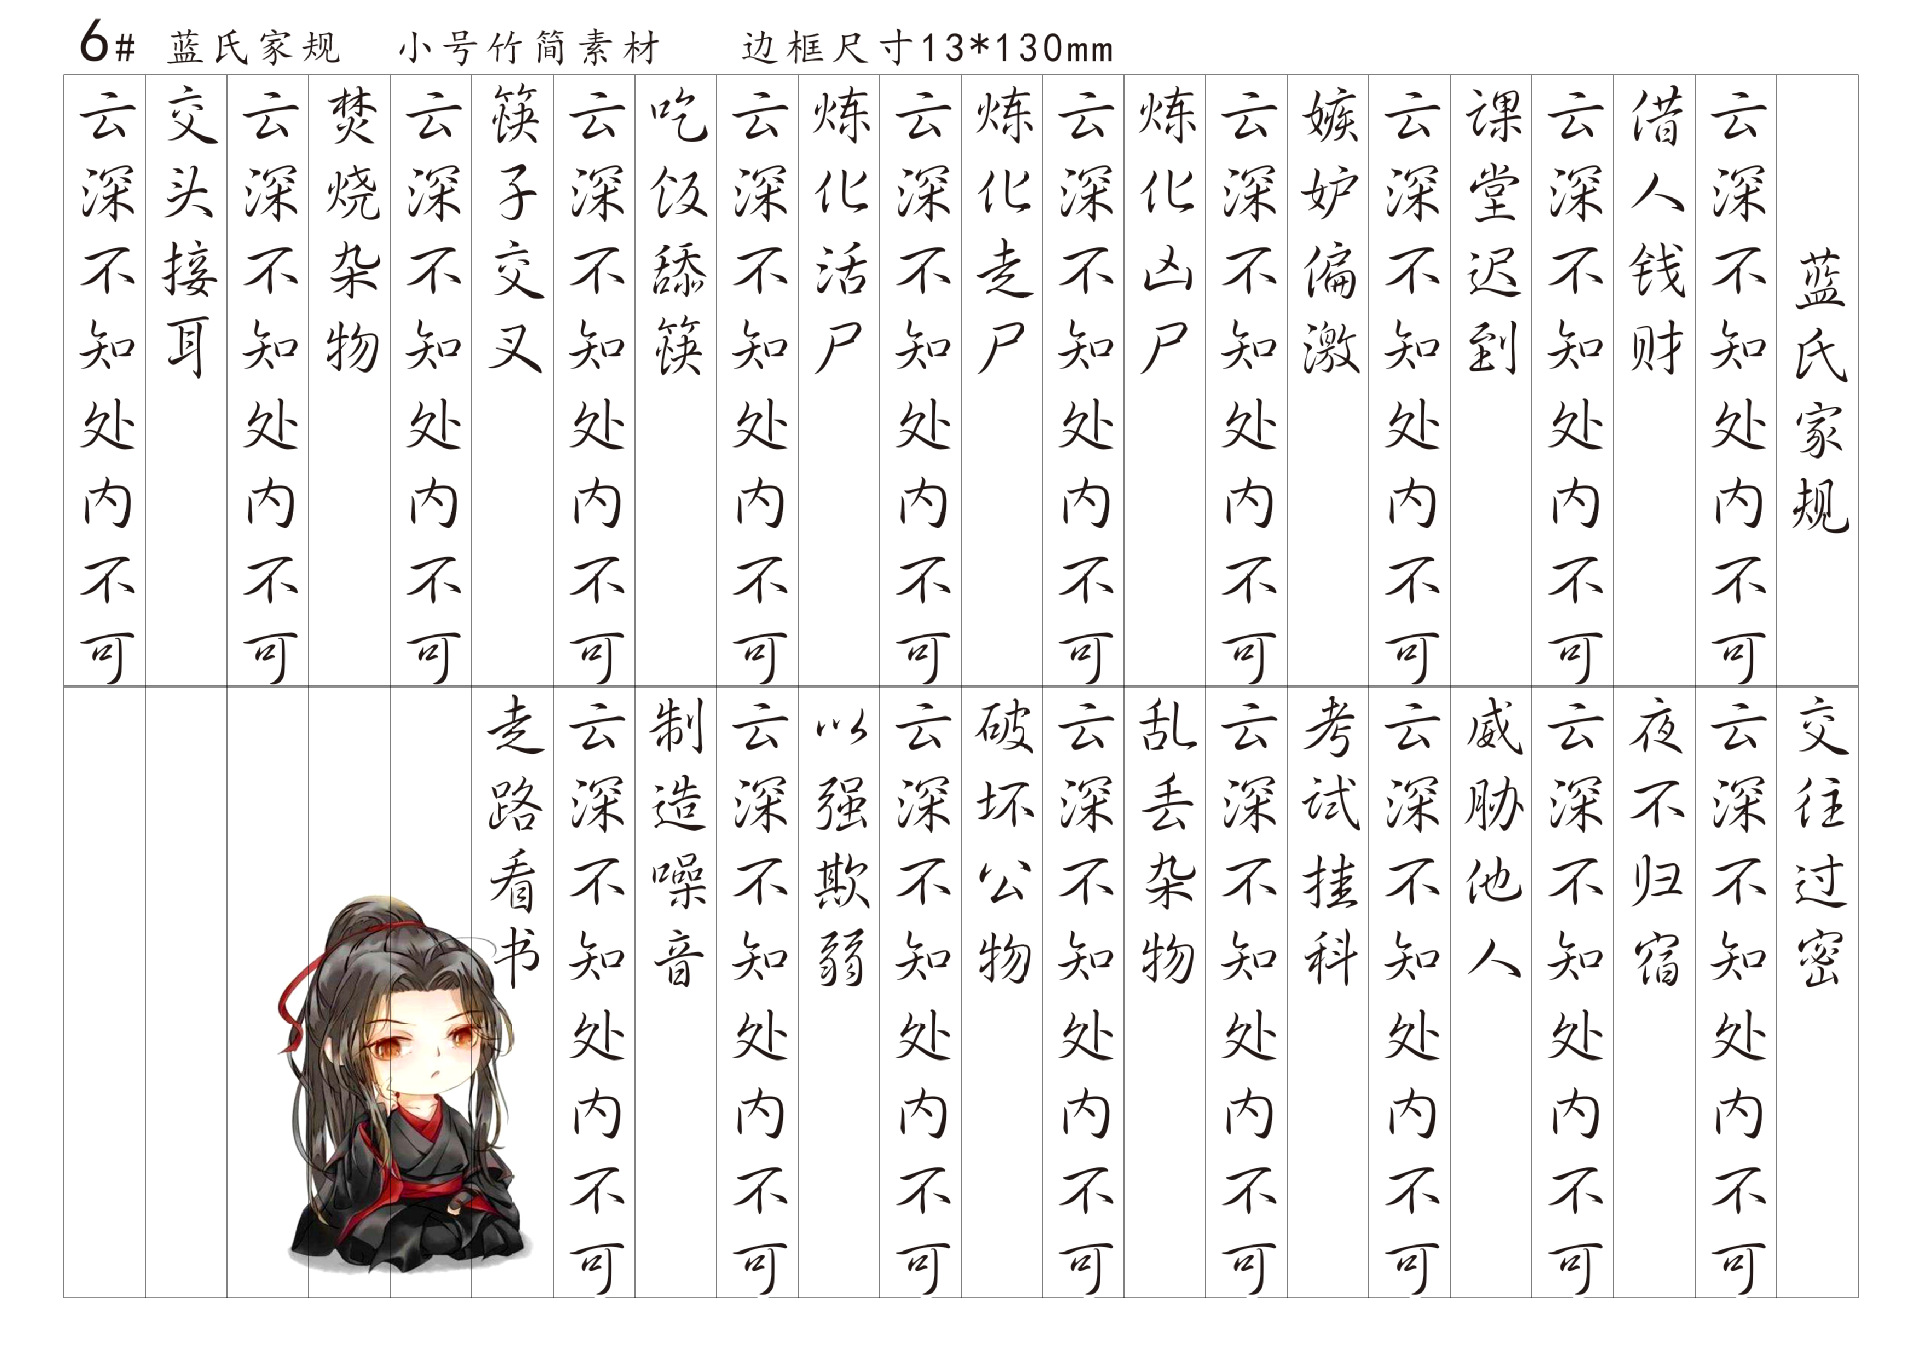 6# 蓝氏家规 小号竹简素材 边框尺寸13*130mm
蓝氏家规
云深不知处内不可
借人钱财
云深不知处内不可
课堂迟到
云深不知处内不可
嫉妒偏激
云深不知处内不可
炼化凶尸
云深不知处内不可
炼化走尸
云深不知处内不可
炼化活尸
云深不知处内不可
吃饭舔筷
云深不知处内不可
筷子交叉
云深不知处内不可
焚烧杂物
云深不知处内不可
交头接耳
云深不知处内不可
交往过密
云深不知处内不可
夜不归宿
云深不知处内不可
威胁他人
云深不知处内不可
考试挂科
云深不知处内不可
乱丢杂物
云深不知处内不可
破坏公物
云深不知处内不可
以强欺弱
云深不知处内不可
制造噪音
云深不知处内不可
走路看书